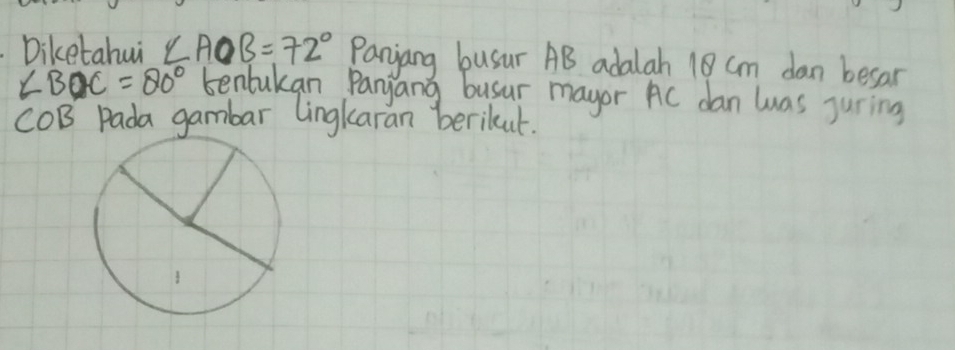 Diketahui ∠AOB = 72° Panjang busur AB adalah 18 cm dan besar
∠BOC = 80° tentukan Panjang busur mayor AC dan luas juring
COB Pada gambar lingkaran berikut.